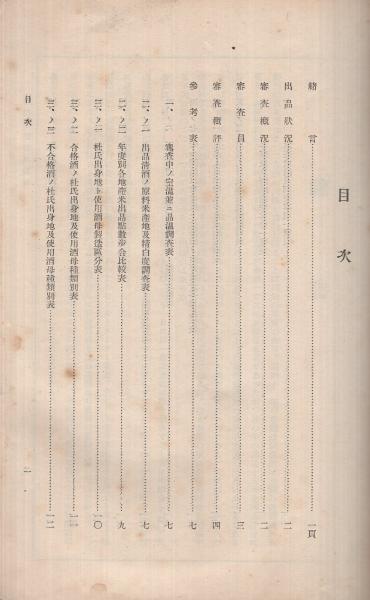 目次
緒言……一頁
出品狀況……二
審査概況……二
審査員……三
審査概評……四
參考表……七
一、審査中ノ室溫並ニ品溫調査表……七
二ノ一 出品清酒ノ原料米產地及精白度調査表……七
二ノ二 年度別各地產米出品點數步合比較表……九
三ノ一 杜氏出身地ト使用酒母製造區分表……一〇
三ノ二 合格酒ノ杜氏出身地及使用酒母種類別表……一一
三ノ三 不合格酒ノ杜氏出身地及使用酒母種類別表……一二
目次
一